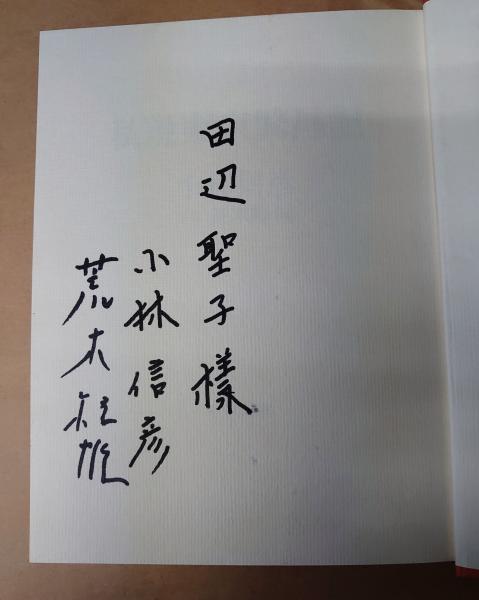 田辺聖子様
小林信彦
荒木経惟